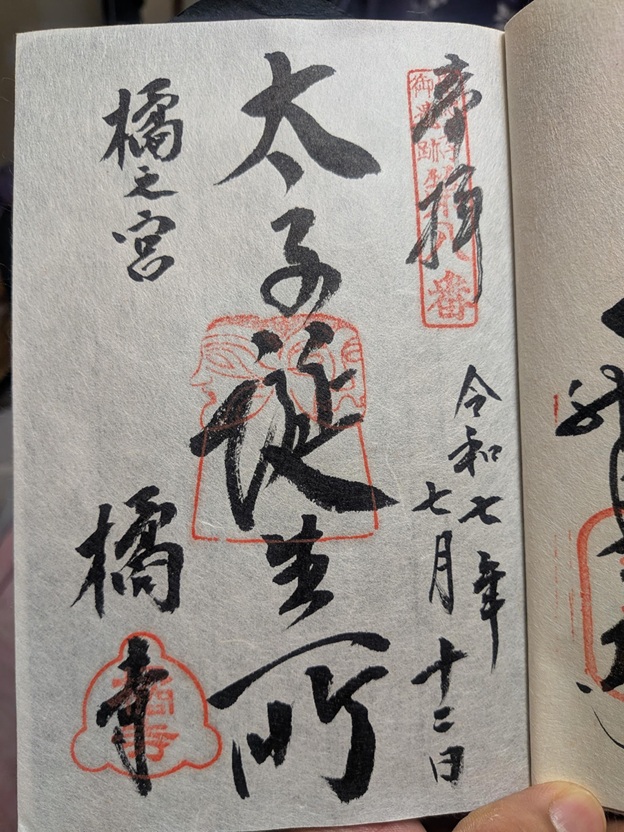 奉拝
御遺跡第八番
令和七年
七月十二日
太子誕生所
橘之宮
橘寺
橘寺